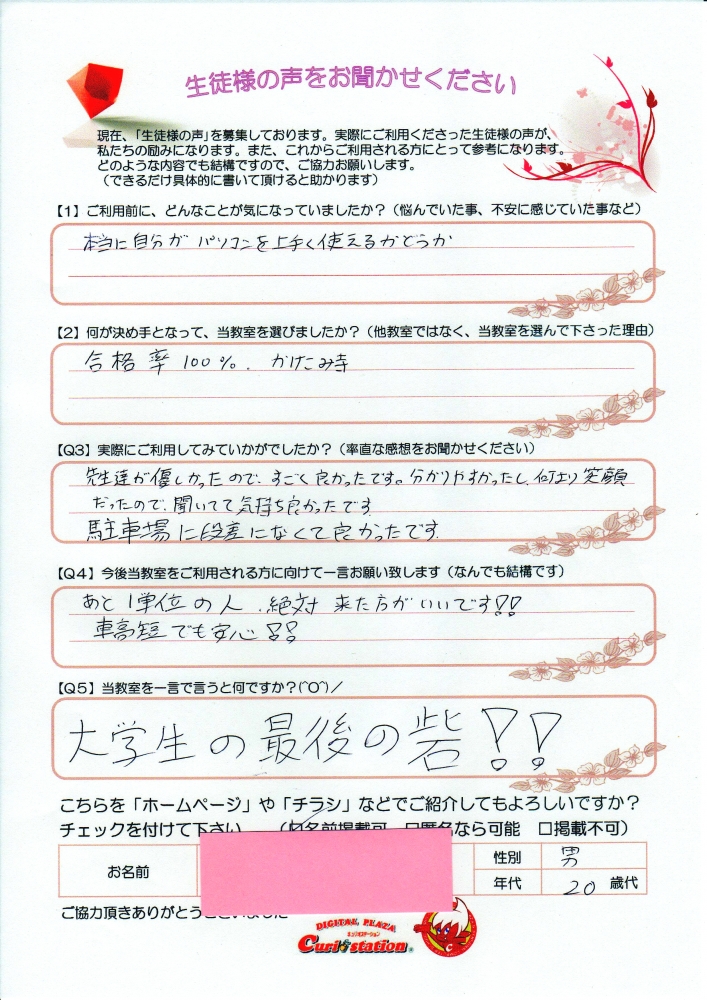 生徒様の声をお聞かせください
現在、「生徒様の声」を募集しております。実際にご利用くださった生徒様の声が、
私たちの励みになります。また、これからご利用される方にとって参考になります。
どのような内容でも結構ですので、ご協力お願いします。
(できるだけ具体的に書いて頂けると助かります)
【1】ご利用前に、どんなことが気になっていましたか?(悩んでいた事、不安に感じていた事など)
本当に自分がパソコンを上手く使えるかどうか
【2】何が決め手となって、当教室を選びましたか?(他教室ではなく、当教室を選んで下さった理由)
合格率100%.かけこみ寺
【Q3】実際にご利用してみていかがでしたか?(率直な感想をお聞かせください)
先生達が優しかったので、すごく良かったです。分かりやすかったし、何より笑顔
だったので、聞いてて気持ち良かったです
駐車場に段差になくて良かったです.
【Q4】今後当教室をご利用される方に向けて一言お願い致します(なんでも結構です)
あと1単位の人、絶対来た方がいいです!!
車高短でも安心!!
【Q5】当教室を一言で言うと何ですか?(^O^)/
大学生の最後の砦!!
こちらを「ホームページ」や「チラシ」などでご紹介してもよろしいですか?
チェックを付けて下さい (☑名前掲載可 □匿名なら可能 □掲載不可)
お名前 性別 男
年代 20 歳代
ご協力頂きありがとうございました
DIGITAL PLAZA
Curiostation